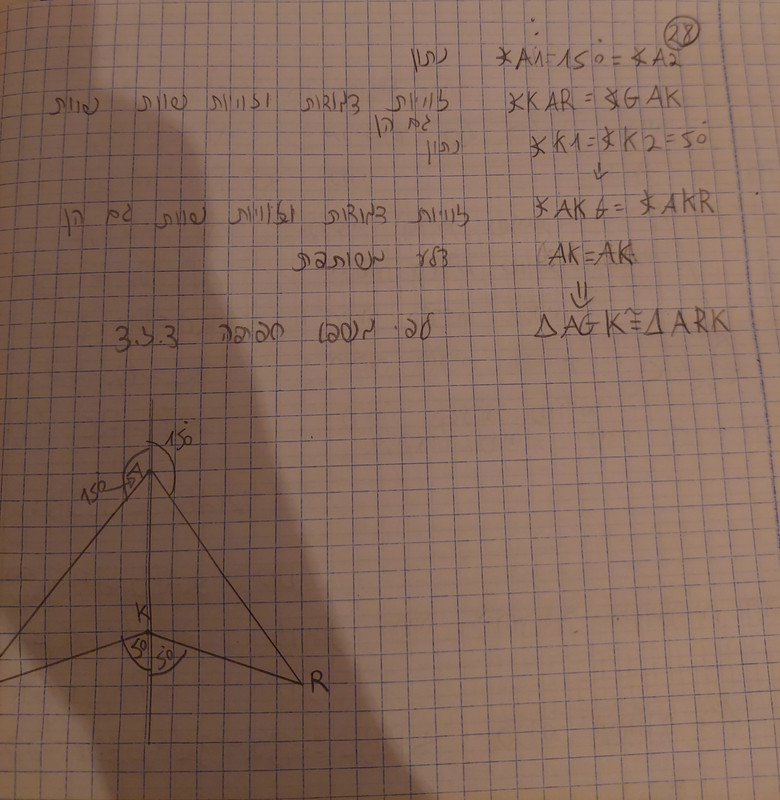 28
∢A1=150°=∢A2 נתון
∢KAR = ∢GAK זוויות צמודות לזוויות שוות שוות
גם הן
∢K1=∢K2=50° נתון
↓
∢AKG=∢AKR זוויות צמודות לזוויות שוות גם הן
AK=AK צלע משותפת
⇓
△AGK≅△ARK חפיפה ז.צ.ז
150°
150°
A
K
50 50
R